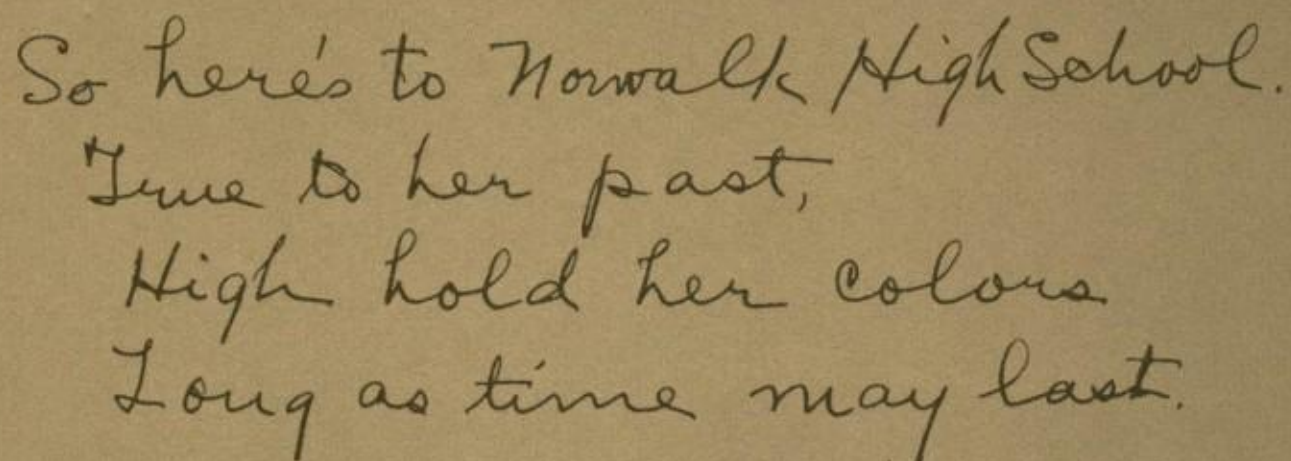 So here's to Norwalk High School.
True to her past,
High hold her colors
Long as time may last.